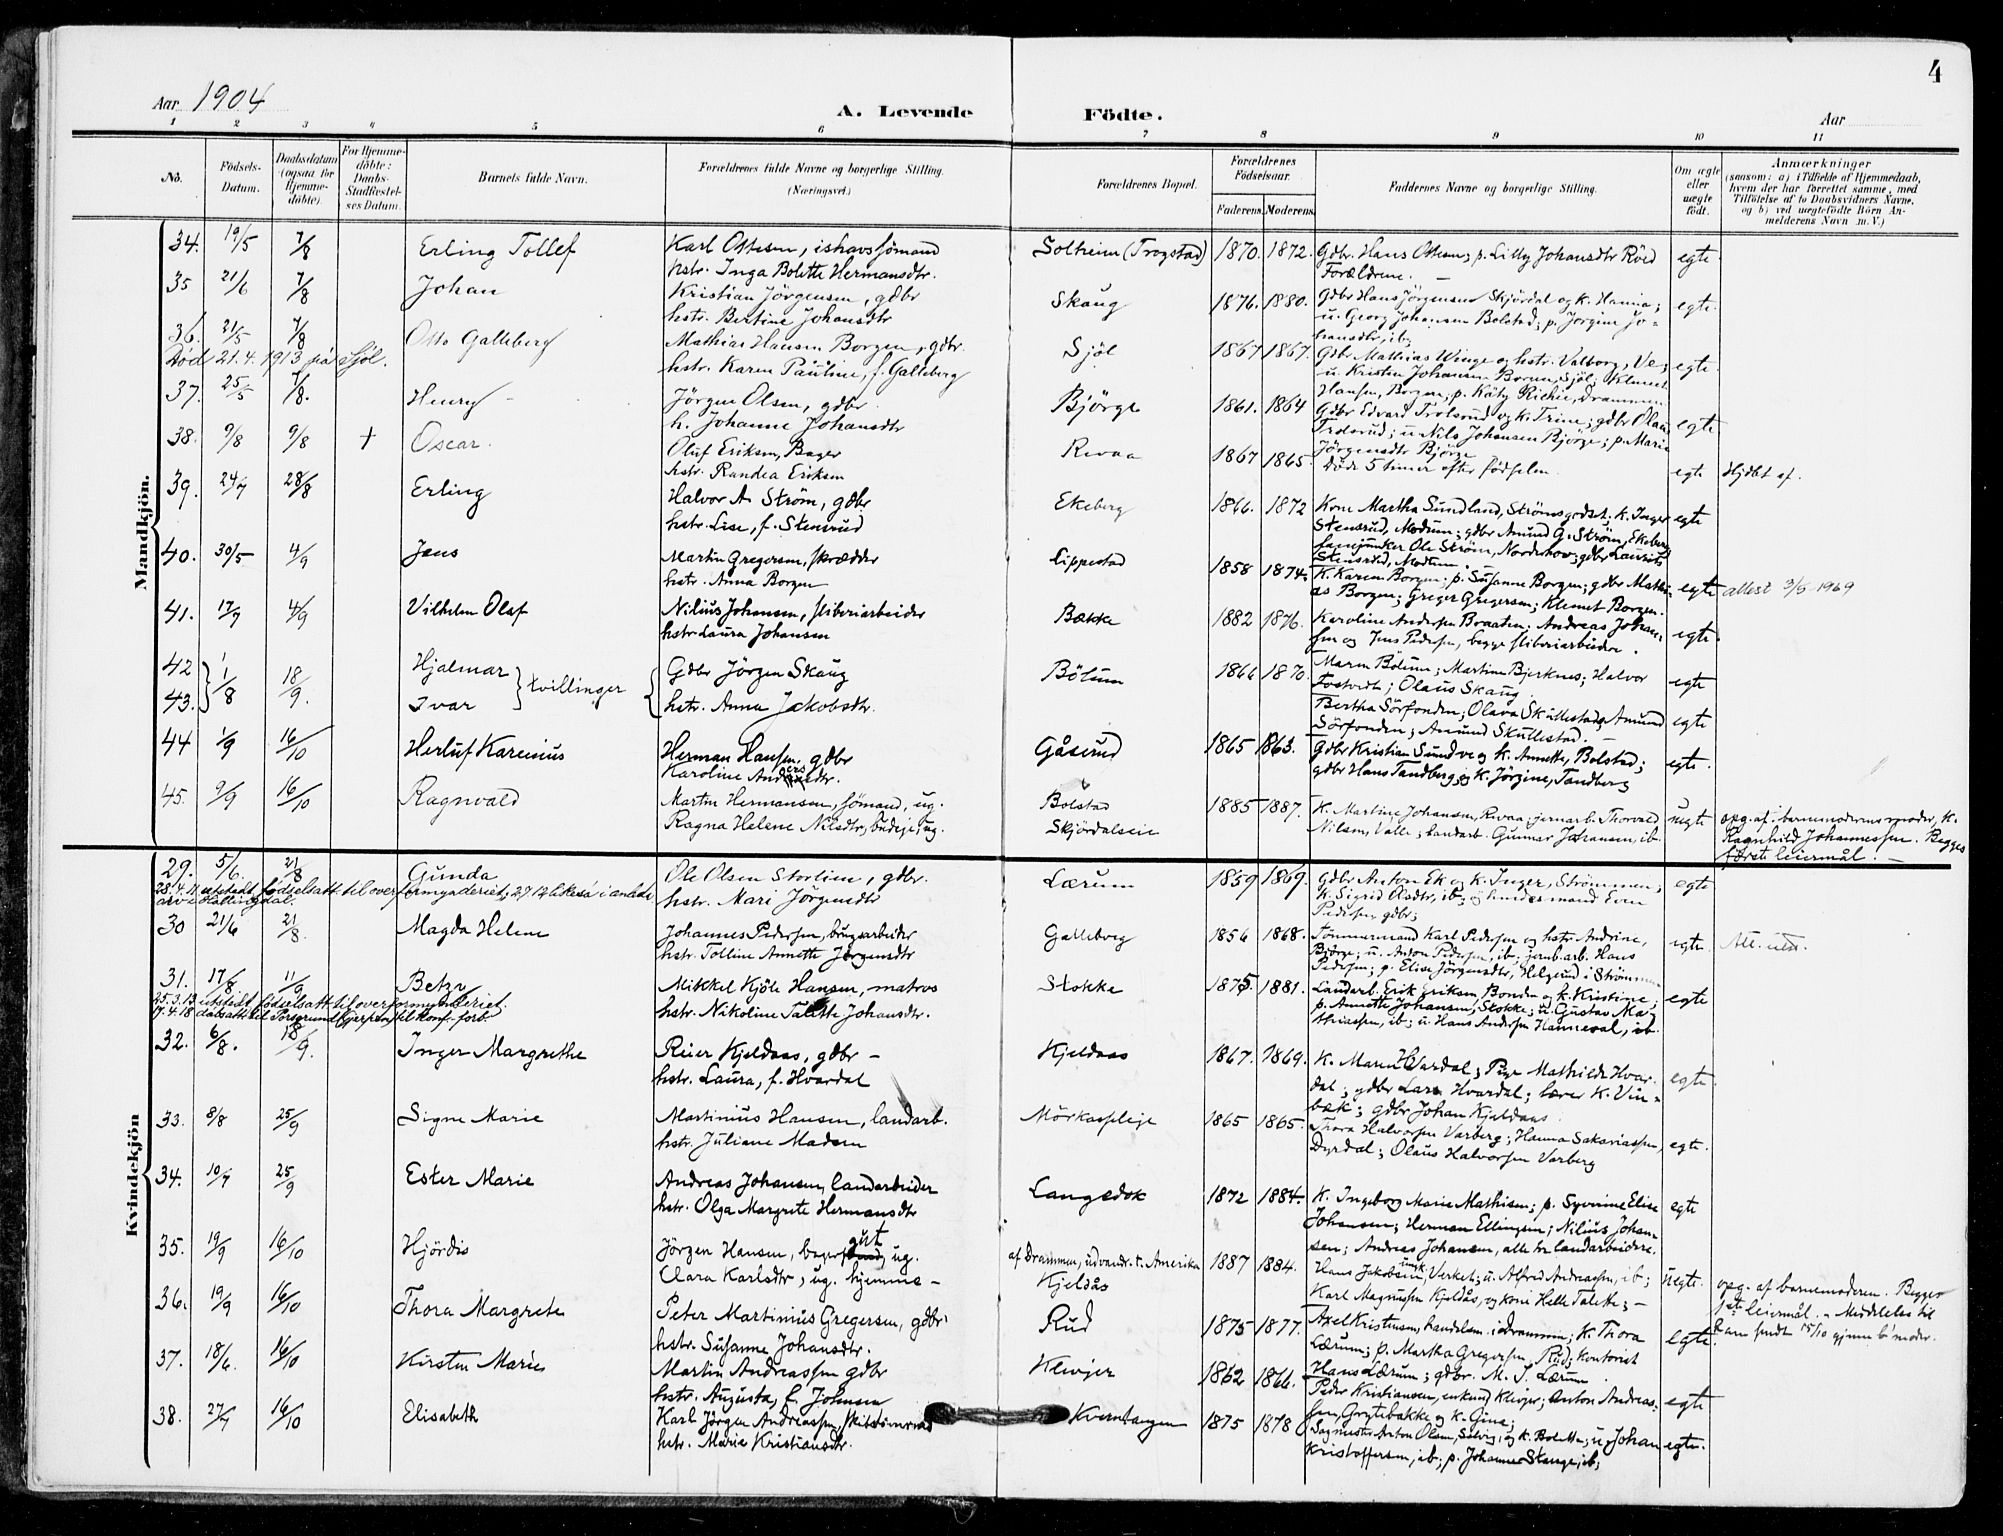 4
Aar 1904
A. Levende Födte.
Aar
1 2 3 4 5 6 7 8 9 10 11
No.
Födsels-Datum.
Daabsdatum (ogsaa for Hjemme-döbte).
For Hjemme-döbte: Daabs-Stadfæstel-ses Datum.
Barnets fulde Navn.
Forældrenes fulde Navne og borgerlige Stilling.
(Næringsvei.)
Forældrenes Bopæl.
Forældrenes Födselsaar.
Faderens. Moderens.
Faddernes Navne og borgerlige Stilling.
Om ægte eller uægte født.
Anmærkninger
(saasom: a) i Tilfælde af Hjemmedaab,
hvem der har forrettet samme, med
Tilföielse af to Daabsvidners Navne,
og b) ved uægtefödte Börn An-
melderens Navn m. V.)
Mandkjön.
34. 19/5 7/8 Erling Tollef Karl Ottesen, ishavssømand Solheim (Trogstad) 1870. 1872. Gdbr. Hans Ottesen; p. Lilly Johansdtr Röed egte.
hstr. Inga Bolette Hermansdtr. Forældrene. —
35 21/6 7/8 Johan Kristian Jörgensen, gdbr Skaug 1876. 1880. Gdbr Hans Jörgensen Skjördal og k. Hanna; egte.
hstr. Bertine Johansdtr u. Georg Johansen Bolstad; p. Jörgine Jo-
hansdtr, ib.
36. 21/5 7/8 Otto Galleberg Mathias Hansen Borgen, gdbr. Sjöl 1867 1867. Gdbr Mathias Winge og hstr. Valborg, Ve; egte.
Död 21.4.1913 på Sjöl. hstr. Karen Pauline, f. Galleberg u. Kristen Johansen Borgen, Sjöl; Klemet
Hansen, Borgen; p. Käty Richie, Drammen.
37. 25/5 7/8. Henry Jörgen Olsen, gdbr. Björge 1861. 1864 Gdbr Edvard Trolsrud og k. Trine; gdbr Olaus egte
h. Johanne Johansdtr Trolsrud; u. Nils Johansen Björge; p. Marie
Jörgensdtr Björge
38. 9/8 9/8 + Oscar. Oluf Eriksen, Bager Revaa 1867 1865. Döde 5 timer efter födselen. egte Hjdbt af.
hstr. Randea Eriksen
39. 24/7 28/8 Erling Halvor A. Ström, gdbr Ekeberg 1866. 1872 Kone Martha Sundland, Strömsgodset. k. Inger egte
hstr. Lise, f. Stensrud Stensrud, Modum; gdbr Amund G. Ström, Ekeberg
Ole Ström, Norderhov; gdbr Laurits
Stensrud, Modum.
40. 30/5 4/9 Jens Martin Gregersen, skrædder Lippestad 1858 1874. K. Karen Borgen; p. Susanne Borgen; gdbr Mathi- egte attest 3/5-1969
hstr. Anna Borgen as Borgen; Greger Gregersen; Klemet Borgen.
41. 17/7 4/9 Vilhelm Olaf Nilius Johansen, sliberiarbeider Bække 1882 1876. Karoline Andersen Braaten; Andreas Johan- egte.
hstr Laura Johansen sen og Jens Pedersen, begge sliberiarbeidere.
42 1/8 18/9. Hjalmar tvillinger Gdbr Jörgen Skaug Bölum 1866 1870. Maren Bölum; Martine Bjerknes; Halvor egte
Fostvedt; Olaus Skaug.
43. Ivar hstr. Anna Jakobsdtr. Bertha Sörfonden; Olava Skullestad; Amund egte
Sörfonden; Amund Skullestad. —
44 1/9 16/10 Herluf Karenius Herman Hansen, gdbr Gåserud 1865 1863. Gdbr Kristian Sundve og k. Annette, Bolstad; egte.
Karoline Andersdtr. gdbr Hans Tandberg, og k. Jörgine, Tandberg
45. 9/9 16/10 Ragnvald Martin Hermansen, sömand, ug. Bolstad 1885 1887. K. Martine Johansen, Revaa; jernarb. Thorvald uegte opg. af. barnemoderens moder, K.
Ragna Helene Nilsdtr, budeje, ug. Skjördalseie Nilsen, Valle; landarb. Gunnar Johansen, ib. Ragnhild Johannessen. Begges
første leiermål. —
Kvindekjön
29. 5/6. 21/8 Gunda Ole Olsen Stortien, gdbr. Lærum 1859 1869. Gdbr Anton Ek og k. Inger, Strömmen; egte
28.4.11 utstedt fødselsatt. til overformynderiet; 27.12 likeså i anledn. hstr. Mari Jörgensdtr K. Sigrid Olsdtr, ib.; og hendes mand Even
arv i Hallingdal. Pedersen, gdbr;
30 21/6 21/8. Magda Helene Johannes Pedersen, brugsarbeider Galleberg 1856 1868. Tömmermand Karl Pedersen og hstr Andrine, egte Att. utst.
hstr. Tolline Annette Jörgensdtr Björge; u. Anton Pedersen, ib; jernb.arb. Hans
Pedersen; p. Elise Jörgensdtr, Helgerud i Strömmen
31. 17/8 11/9 Betzy Mikkel Kjöle Hansen, matros Stokke 1875. 1881. Landarb. Erik Eriksen, Bonden og k. Kristine; egte
25.3.13 utstedt fødselsatt. til overformynderiet. hstr. Nikoline Talette Johansdtr. p. Annette Johansen, Stokke; u. Gustav Ma-
17.4.18 dåbsatt. til Porsgrund (Gjerpen) til konf. forb. thiassen, ib; u. Hans Andersen Hanneval, ib.
32. 6/8. 18/9. Inger Margrethe Reier Kjeldaas, gdbr — Kjeldaas 1867. 1869. K. Maren Hvardal; Pige Mathilde Hvar- egte.
hstr. Laura, f. Hvardal dal; gdbr Lars Hvardal; lærer K. Vin-
bæk; gdbr Johan Kjeldaas.
33. 8/8 25/9 Signe Marie Martinius Hansen, landarb. Mörkaspleje 1865 1865. Thora Halvorsen Varberg; Hanna Sakariassen, egte.
hstr. Juliane Madsen Dyrdal; Olaus Halvorsen Varberg
34. 10/7 25/9 Ester Marie Andreas Johansen, landarbeider Langedok 1872 1884. K. Ingeborg Marie Mathisen; p. Syverine Elise egte
hstr. Olga Margrete Hermansdtr Johansen; Herman Ellingsen; Nilius Johan-
sen; Andreas Johansen, alle tre landarbeidere.
35. 19/9 16/10 Hjördis Jörgen Hansen, bagergut, ug. af Drammen, udvandr. t. Amerika 1887 1884. Hans Jakobsen, ungk. Verket; u. Alfred Andreassen, ib; uegte. opg. af barnemoderen. Begges
Clara Karlsdtr, ug. hjemme — Kjeldås Karl Magnussen Kjeldås, og kone Helle Talette; — 1ste leiermål. — Meddelelse til
36. 19/9 16/10 Thora Margrete Peter Martinius Gregersen, gdbr. Rud 1875 1877. Axel Kristensen, handelsm. i Drammen; k. Thora egte. sendt 15/10 gjennem b'moder.
hstr. Susanne Johansdtr. Lærum; p. Martha Gregersen, Rud; kontorist
Hans Lærum; gdbr. M. S. Lærum.
37. 18/6. 16/10 Kirsten Marie Martin Andreassen gdbr Klevjer 1862 1866. Peder Kristiansen, enkemd Klevjer; Anton Andreas- egte
hstr. Augusta, f. Johnsen sen, Grytebakke og k. Gina;
38. 27/7 16/10 Elisabeth Karl Jörgen Andreassen, Kverntangen 1875 1878 Sagmester Anton Olsen, Solvig, og k. Bolette; u. Johan egte.
hstr. Marie Kristiansdtr. Kristoffersen, ib; p. Johanne Stange, ib;